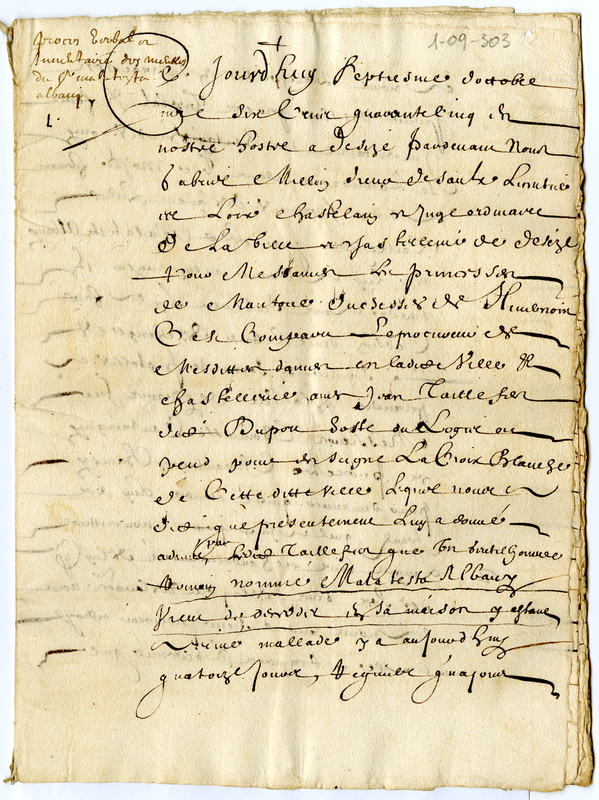 procez verbal et
Inventaire des meubles
du Sr malatesta
albany
1.
1-09-303
Ce Jourd'huy septiesme doctobre
mil six cens quarante cinq en
nostre hostel a Desize pardevant Nous
Sieur de Lieutenant
de Loix chastelain et Juge ordinaire
de La ville et chastellenie de desize
pour Mesdames Les princesses
de Mantoue duchesses de Nivernois
C'est Comparu Le procureur de
Mesdittes dames en ladite Ville et
chastellenie avec Jean Taillefer
dict Dupon hoste du Logis ou
pend pour enseigne La Croix Blanche
de Cette ditte ville lequel nous
dict que presentement Luy a donné
advis par Ledit Taillefer que Un gentilhomme
Romain nommé Malatesta Albany
Vient de deceder en sa maison y estant
arrivé mallade y a aujourdhuy
quatorze Jours,